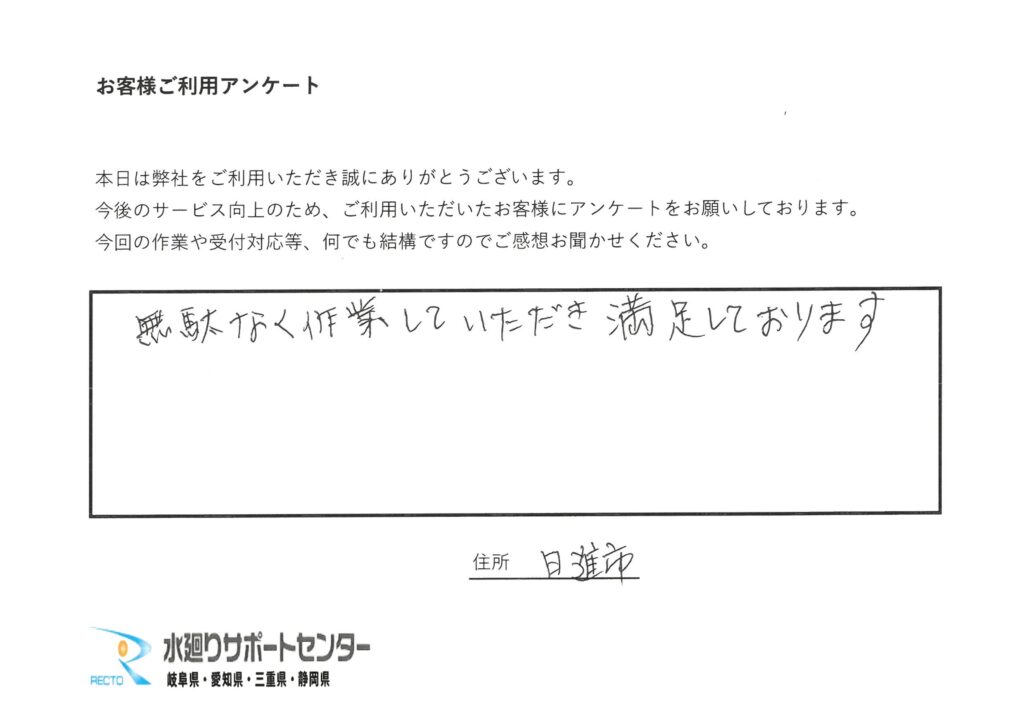 お客様ご利用アンケート
本日は弊社をご利用いただき誠にありがとうございます。
今後のサービス向上のため、ご利用いただいたお客様にアンケートをお願いしております。
今回の作業や受付対応等、何でも結構ですのでご感想お聞かせください。
無駄なく作業していただき満足しております
住所 日進市
RECTO 水廻りサポートセンター
岐阜県・愛知県・三重県・静岡県